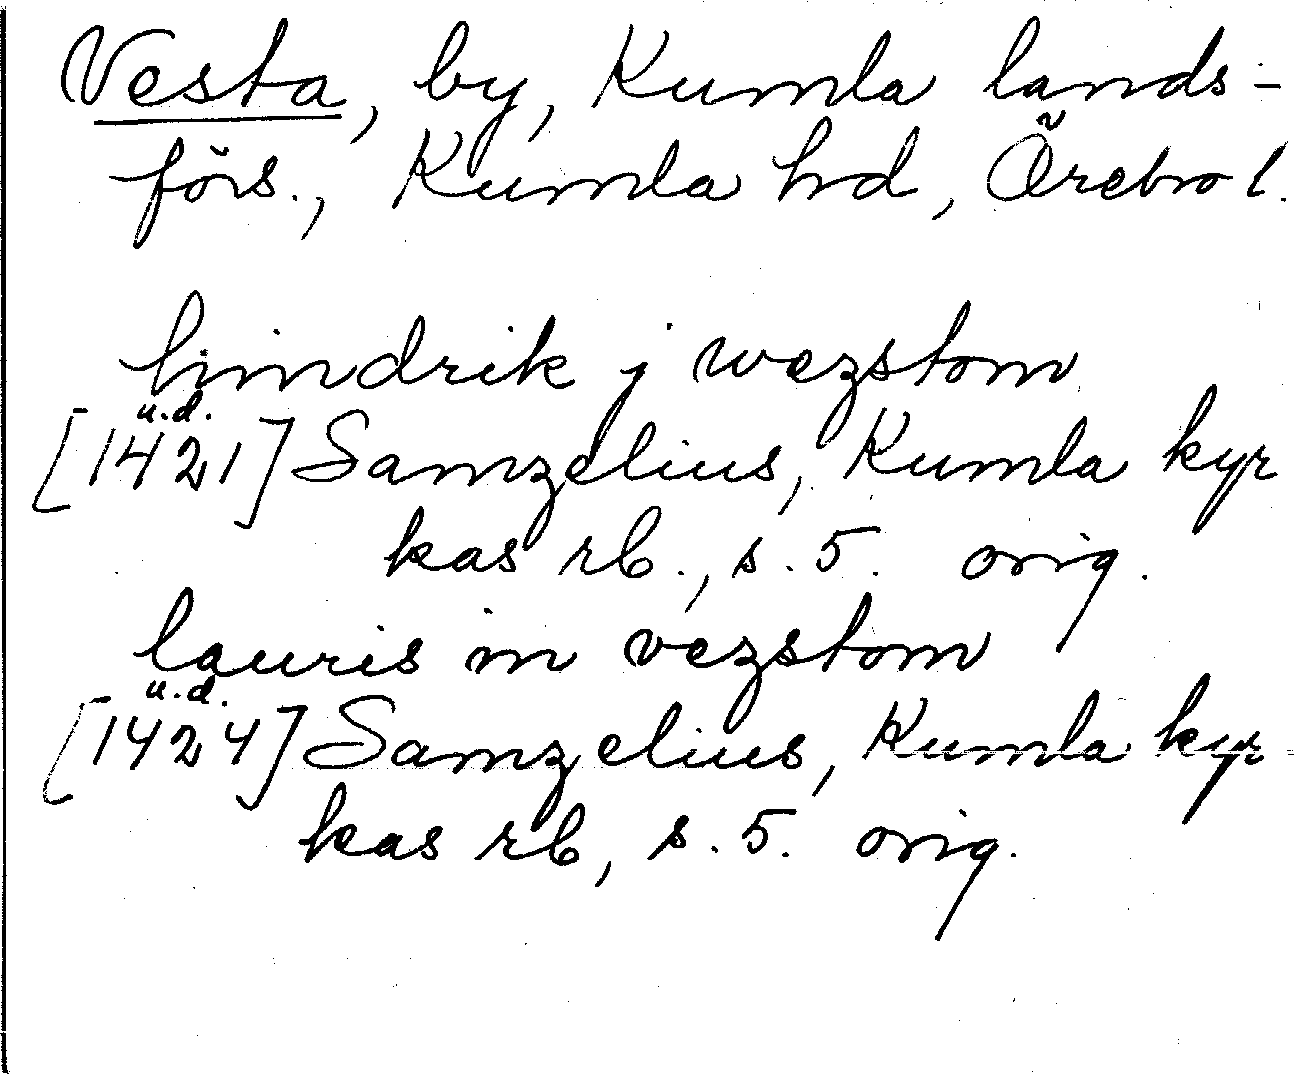 Vesta, by, Kumla lands-
förs., Kumla hd, Örebro l.
hindrik j wezstom
u.d.
[1421] Samzelius, Kumla kyr
kas rb., s. 5. orig.
lauris in vezstom
u.d.
[1424] Samzelius, Kumla kyr
kas rb, s. 5. orig.